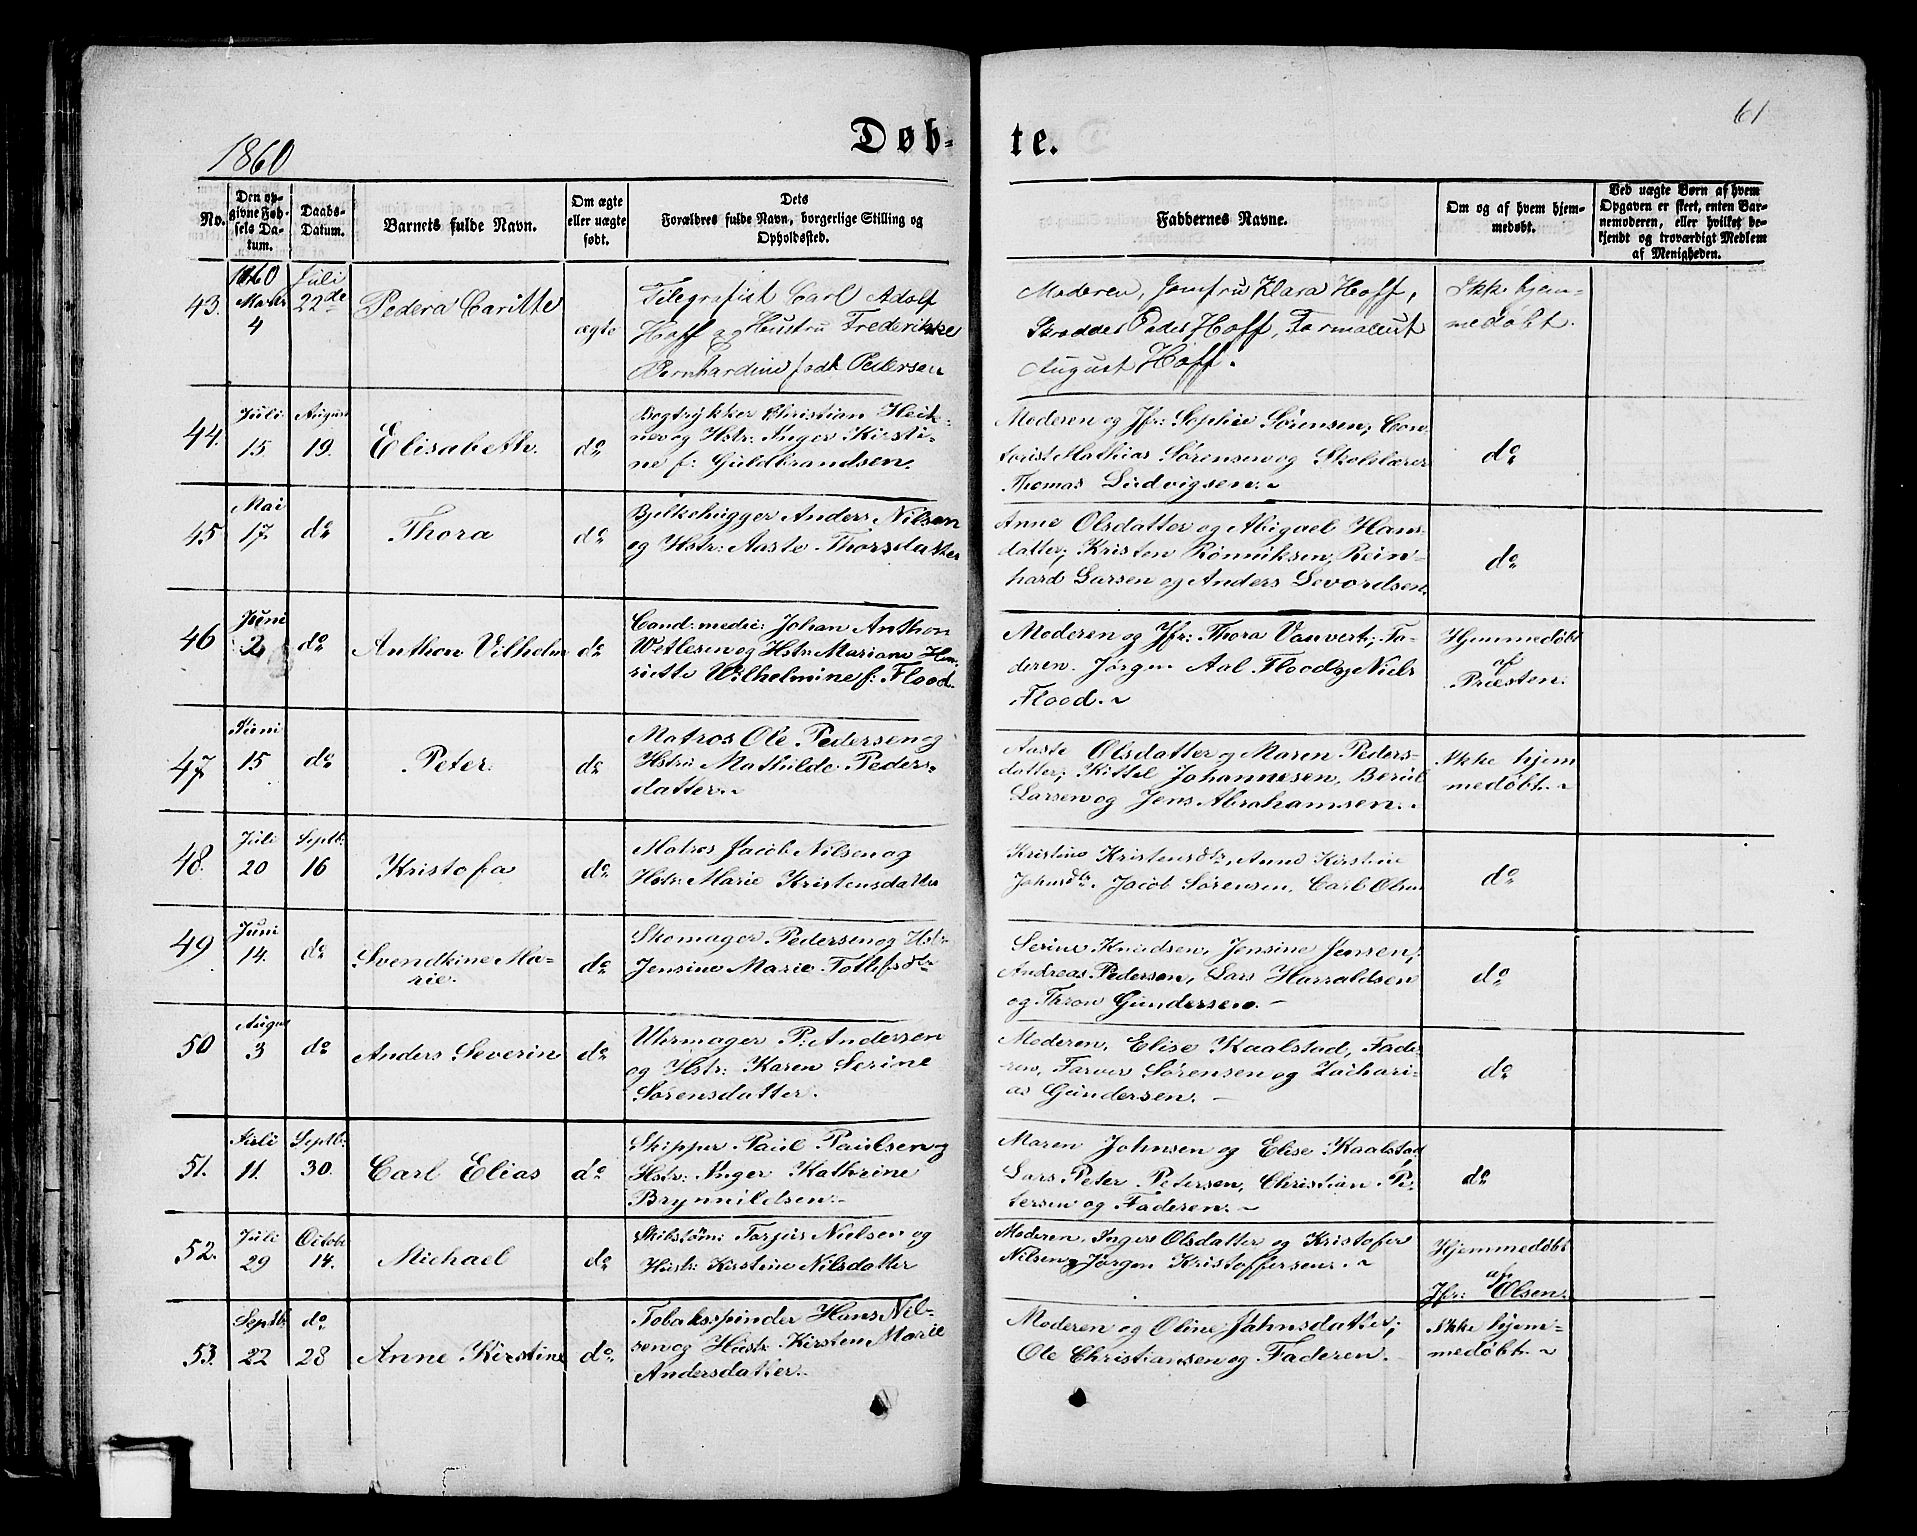 61
1860
Døb-
te.
No.
Den op-
givne Fød-
sels Da-
tum.
Daabs-
Datum.
Barnets fulde Navn.
Om ægte
eller uægte
født.
Dets
Forældres fulde Navn, borgerlige Stilling og
Opholdssted.
Faddernes Navne.
Om og af hvem hjem-
medøbt.
Ved uægte Børn af hvem
Opgaven er skeet, enten Bar-
nemoderen, eller hvilket be-
kjendt og troværdigt Medlem
af Menigheden.
43.
1860
Marts
4
Juli
22de
Pedera Caritte
ægte
Telegrafist Carl Adolf
Hoff og Hustru Frederikke
Bernhardine født Pedersen
Moderen, Jomfru Klara Hoff,
Peder Hoff,
August Hoff.
Ikke hjem-
medøbt.
44.
Juli
15
August
19.
Elisabeth.
do
Bogtrykker Christian
og Hstr: Inger Kirsti-
ne f: Guldbrandsen.
Moderen og Jfr: Sophie Sørensen; Con-
torist Mathias Sørensen og Skolelærer
Thomas Ludvigsen. ~
do
45
Mai
17
do
Thora
do
Bjelkehugger Anders Nilsen
og Hstr: Aaste Thorsdatter
Anne Olsdatter og Abigael Hans-
datter; Kristen Rønniksen, Rein-
hard Larsen og Anders Sevordsen.
do
46
Juni
2
do
Anthon Vilhelm
do
Cand: medic: Johan Anthon
Witlesen og Hstr: Mariane Hen-
riette Wilhelmine f: Flood.
Moderen og Jfr: Thora Vauvert; Fa-
deren. Jørgen Aal Flood og Niels
Flood. ~
Hjemmedøbt
af
Præsten.
47
Juni
15
do
Peter
do
Matros Ole Pedersen og
Hstru Mathilde Peders-
datter. ~
Aaste Olsdatter og Maren Peders-
datter; Kittel Johannesen,
Larsen og Jens Abrahamsen. ~
Ikke hjem
medøbt. ~
48.
Juli
20
Septb:
16
Kristofa
do
Matros Jacob Nilsen og
Hstr: Marie Kristensdatter
Kristine Kristensdtr, Anne Kirstine
Johnsdtr. Jacob Sørensen, Carl Olsen
do
49
Juni
14.
do
Svendkine Ma-
rie.
do
Skomager Pedersen og Hstr:
Jensine Marie Tollefsdtr
Serine Knudsen, Jensine Jensen,
Andreas Pedersen, Lars Harraldsen
og Thron Gundersen. -
do
50
August
3
do
Anders Severin
do
Uhrmager P: Andersen
og Hstr: Karen Serine
Sørensdatter.
Moderen, Elise Kaalstad, Fade-
ren, Farver Sørensen og Zachari-
as Gundersen. -
do
51.
Juli
11.
Septb:
30.
Carl Elias
do
Skipper Paul Paulsen og
Hstr: Inger Kathrine
Brynnildsen. -
Maren Johnsen og Elise Kaalstad
Lars Peter Petersen, Christian Pe-
tersen og Faderen. ~
do
52.
Juli
29
Octobr
14.
Michael
do
Skibstømr Torjus Nielsen og
Hustr: Kirstine Nilsdatter
Moderen, Ingere Olsdatter og Kristofer
Nilsen og Jørgen Kristoffersen. ~
Hjemmedøbt
af
Jfr: Olsen.
53.
Septb:
22
do
28
Anne Kirstine
do.
Tobaksspinder Hans Nil-
sen og Hustr Kirsten Marie
Andersdatter.
Moderen og Oline Jahnsdatter;
Ole Christiansen og Faderen.
Ikke hjem-
medøbt. ~